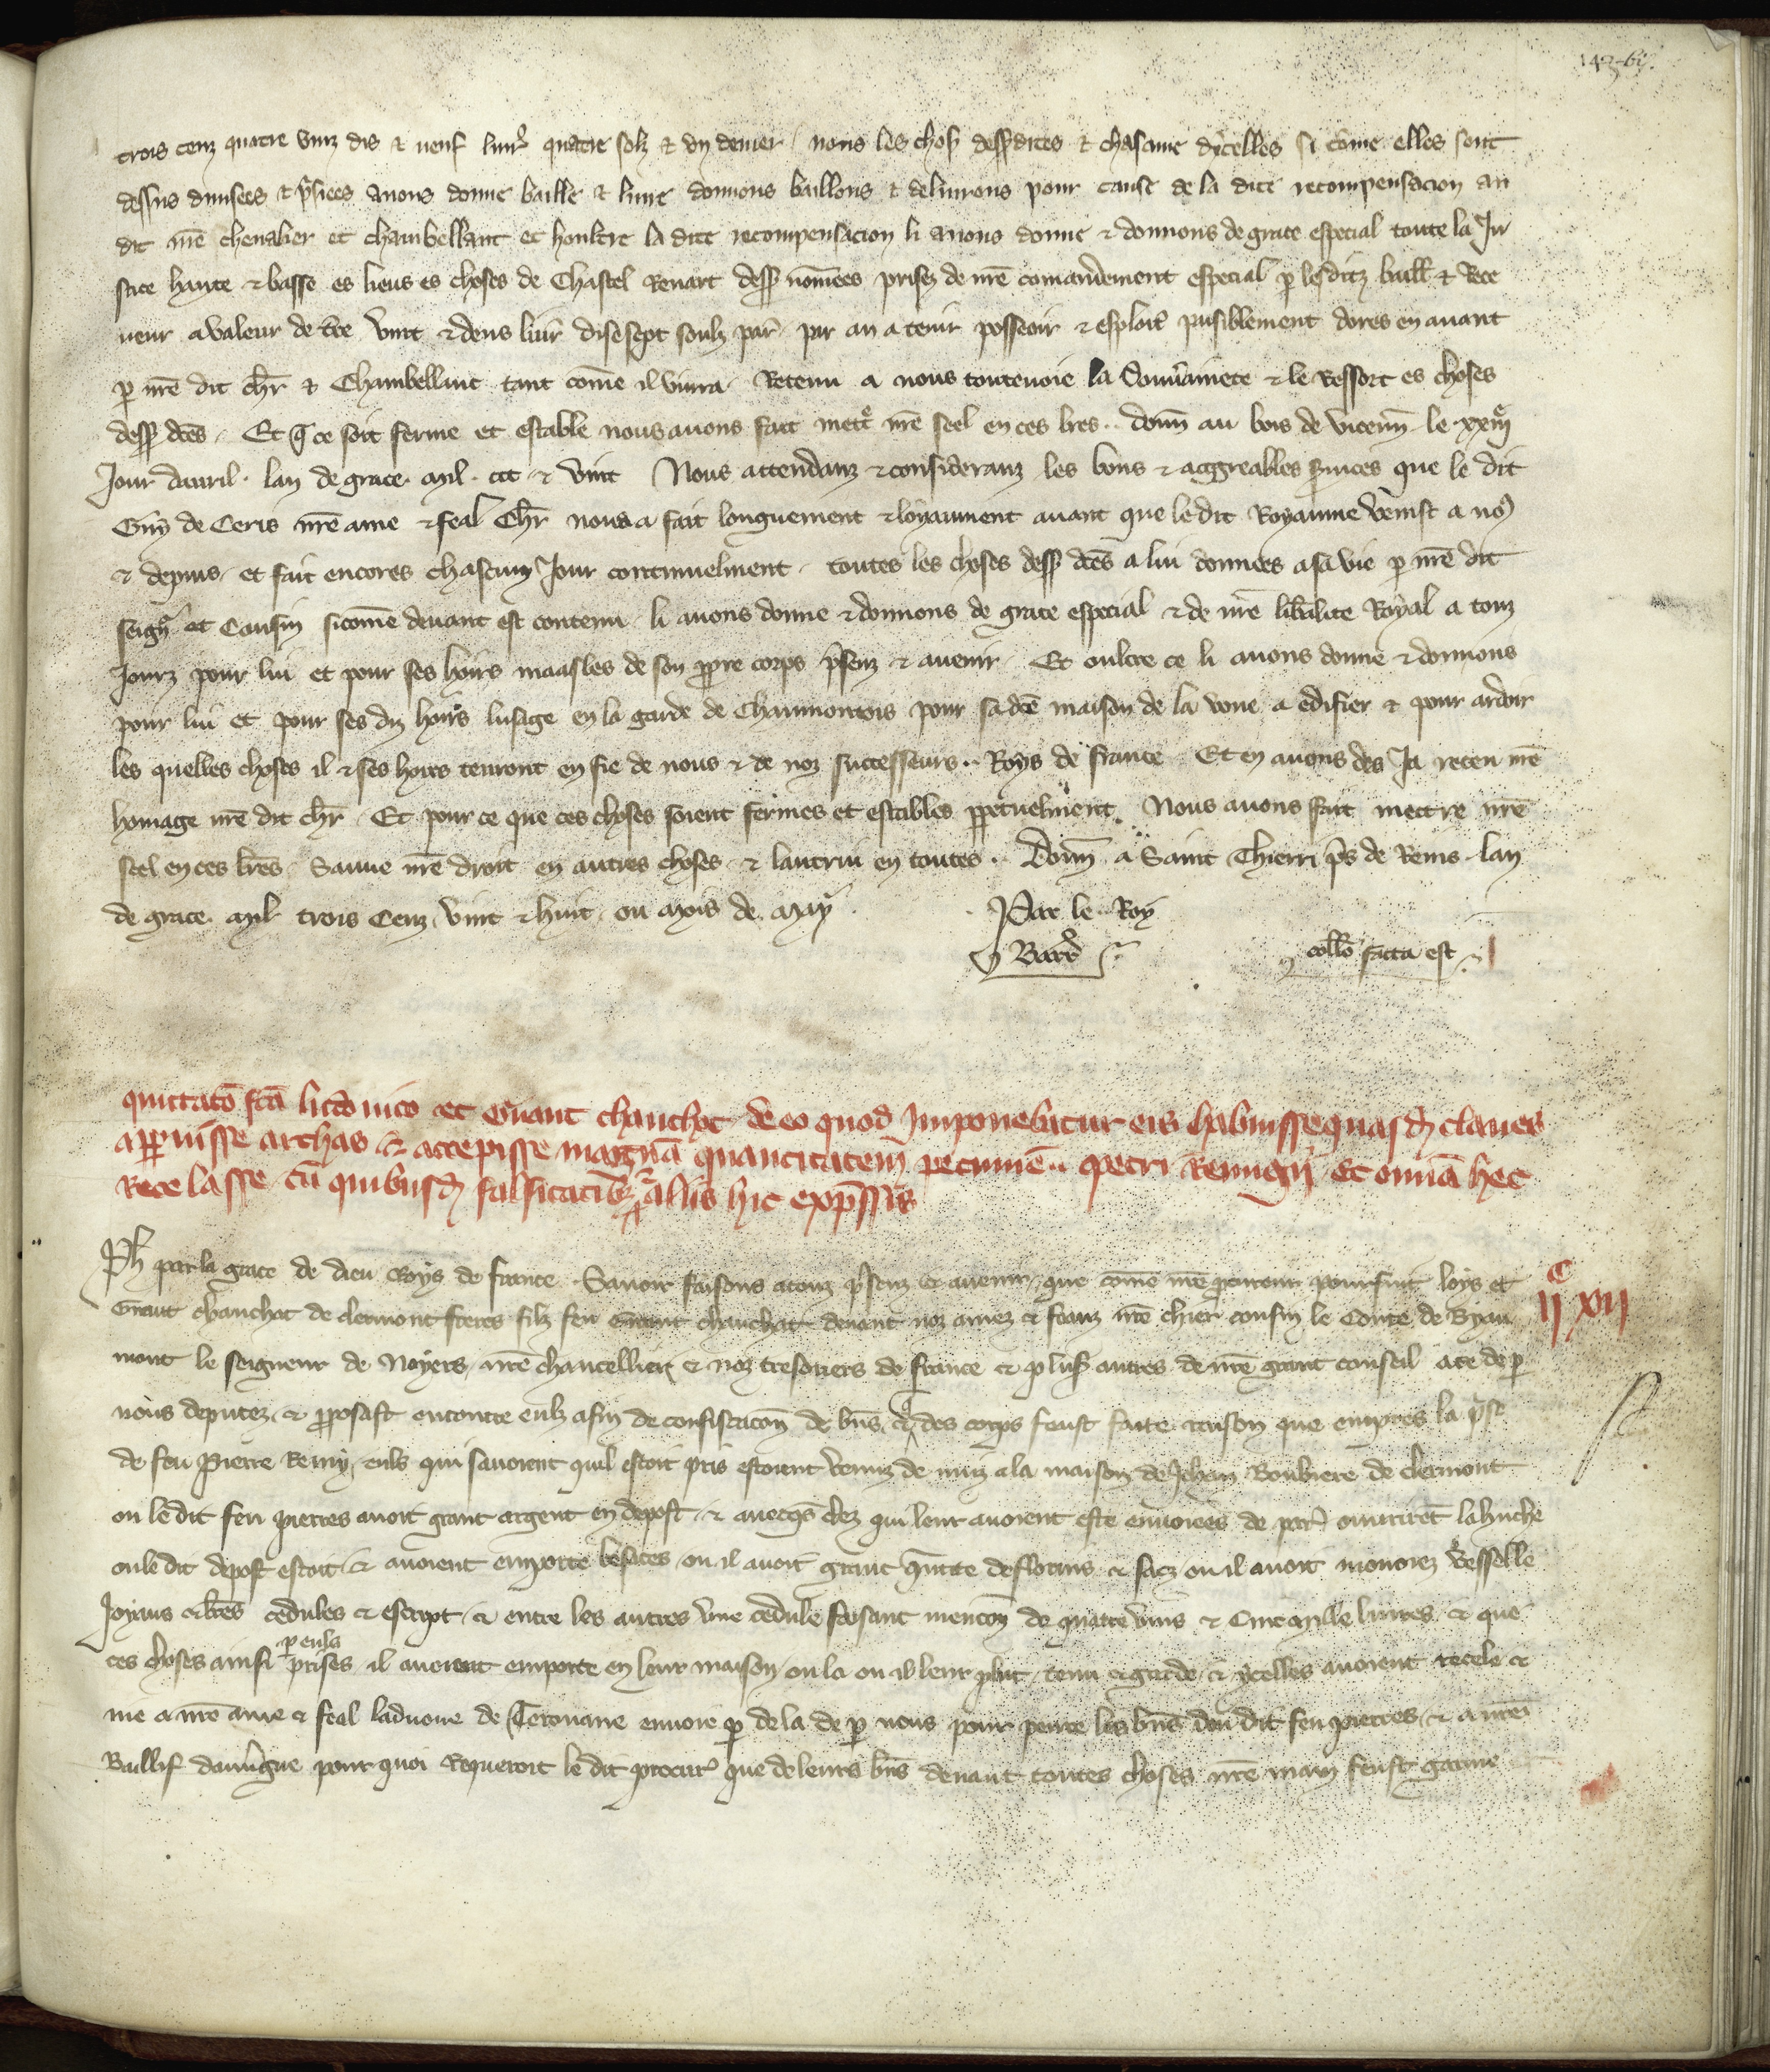 142 bis.
trois cenz quatre vinz dis et neuf livr̃ quatre solz et un denier nous les chos dess dites et chascune dicelles si cõme elles sont
dessus divisees et p̃siees avons donne baillie et livre donnons baillons et delivrons pour cause de la dite recompensacion au
dit nr̃e chevalier et chambellant et houltre la dite recompensacion li avons donne et donnons de grace especial toute la Ju
stice haute et basse es lieus es choses de Chastel Renart dess nõmees prises de nr̃e comandement especial p les ditz baill et Rece
veur a valeur de t̃re vint et deus livr̃ disesept soulz par̃ par an a tenir posseoir et esploit̃ paisiblement dores en avant
p nr̃e dit chr̃ et Chambellanc tant cõme il vivra Retenu a nous toutevoie la Souv̂ainete et le Ressort es choses
dess dc̃es Et q̃ ce soit ferme et estable nous avons fait mett̃ nr̃e seel en ces lr̃es donñ au bois de vicenñ le xxiiij
Jour davril lan de grace mil ccc et vint Nous attendanz et consideranz les bons et aggreables s̃vices que le dit
Guy de Ceris nr̃e ame et feal Chr̃ nous a fait longuement et loyaument avant que le dit Royaume venist a nos
et depuis et fait encores chascun Jour continuelment toutes les choses dess dc̃es a lui donnees a sa vie p nr̃e dit
seign̄r et Cousin sicõme devant est contenu li avons donne et donnons de grace especial et de nr̃e lib̃alite Royal a touz
Jourz pour lui et pour ses hoirs maasles de son p̱pre corps p̃senz et avenir Et oultre ce li avons donne et donnons
pour lui et pour ses diz hoirs lusage en la garde de Chaumontois pour sa dc̃e maison de la voue a edifier et pour ardoir
les quelles choses il et ses hoirs tenront en fie de nous et de noz successeurs Roys de france Et en avons des Ja receu nr̃e
homage nr̃e dit chr̃ Et pour ce que ces choses soient fermes et estables p̱petuelment Nous avons fait mettre nr̃e
seel en ces lr̃es Sauve nr̃e droit en autres choses et lautrui en toutes Donñ a Saint Thierri p̃s de Reins lan
de grace mil trois Cenz vint et huit ou mois de may
Par le Roy
Barr̃
collõ facta est
quittatõ fc̃a et G̃aut chauchat de eo quod Imponebatur eis habuisse quasd̃ claves
ap̱uisse archas et accepisse magnã quantitatem pecunie petri Remigii et omnia hec
Recelasse cũ quibusd̃ falsitatib̃ aliis hic exp̃ssis
Ph par la grace de dieu Roys de france Savoir faisons a touz p̃senz et avenir que cõme nr̃e procureur poursuit loys et
G̃aut chauchat de clermont freres filz feu G̃aut chauchat devant noz amez et feauz nr̃e chier cousin le Conte de Byau
mont le seigneur de Noyers nr̃e chancellier et noz tresoriers de france et plus autres de nr̃e grant conseil a ce de p
nous deputez et p̱posast encontre eulz afin de confiscacioñ de bñs et des corps feust faite raison que empres la p̃se
de feu Pierre Remy eulz qui savoient quil estoit pris estoient venuz de nuiz a la maison de Jehan de clermont
ou le dit feu pierres avoit grant argent en depost et avecq̃s clez qui leur avoient este envoiees de par̃ ouvrirẽt la huche
ou le dit depost estoit et avoient emporte besaces ou il avoit grant q̃ntite de florins et sacz ou il avoit monoiez vesselle
Joyaus et lr̃es cedules et escript et entre les autres une cedule faisant mencioñ de quatre vins et Cinc mille livres et que
ces choses ainsi p eulz prises il avoient emporte en leur maison ou la ou il leur plut tenu et garde et ycelles avoient recele et
nie a nr̃e ame et feal ladvoue de Terouane envoie p de la de p nous pour penre les bñs dou dit feu pierres et a nr̃e
Baillif dauv̂gne pour quoi Requeroit le dit procur̃ que de leurs bñs devant toutes choses nr̃e main feust garnie
ij c xvij